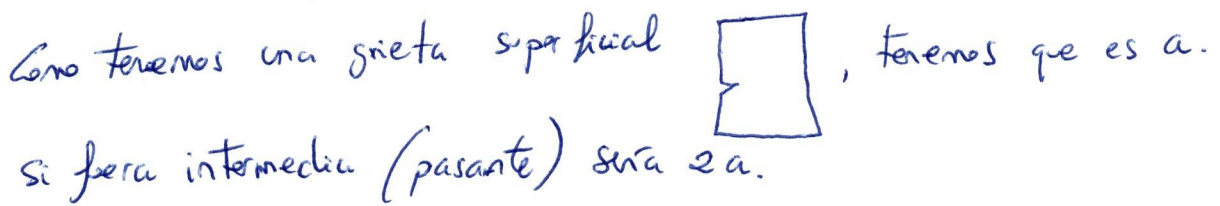 Como tenemos una grieta superficial , tenemos que es a.
si fuera intermedia (pasante) sería 2a.